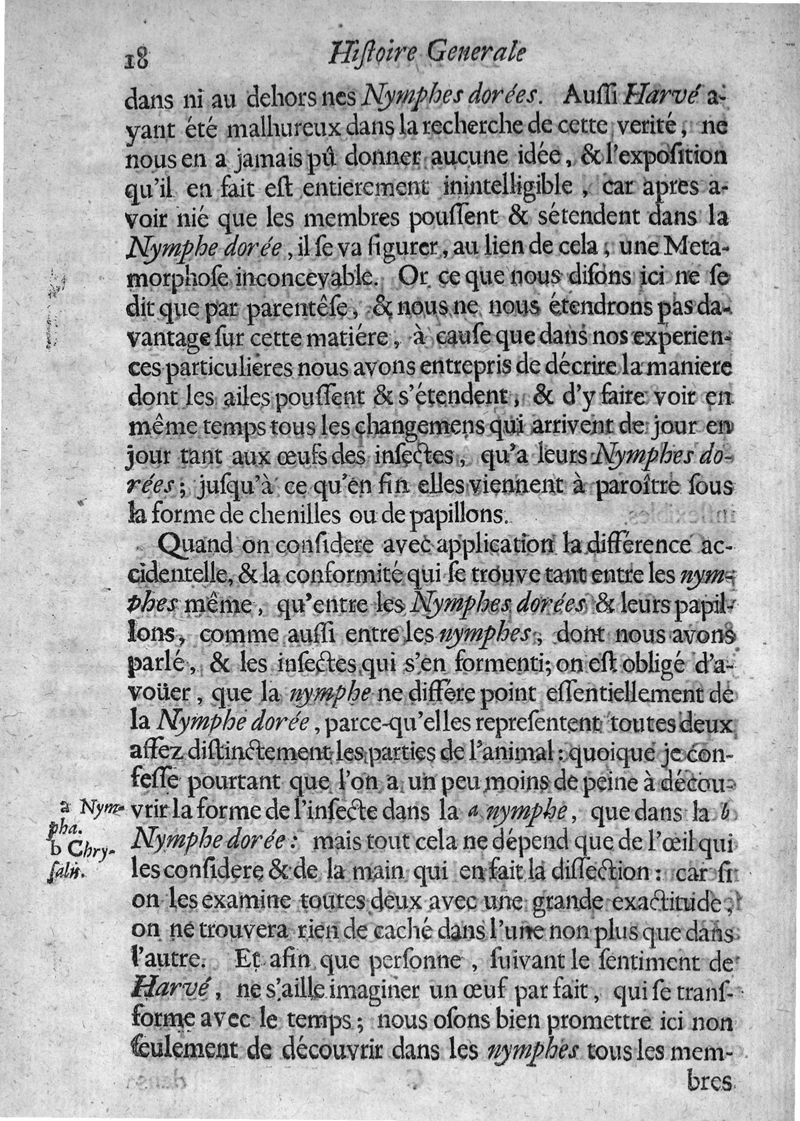 18 Hiſtoire Generale
dans ni au dehors nes Nymphes dorées. Auſſi Harvé a-
yant été malhureux dans la recherche de cette verité, ne
nous en a jamais pû donner aucune idée, & l'expoſition
qu'il en fait eſt entierement inintelligible, car apres a-
voir nié que les membres pouſſent & sétendent dans la
Nymphe dorée, il ſe va figurer, au lien de cela, une Meta-
morphoſe inconcevable. Or ce que nous diſons ici ne ſe
dit que par parentêſe, & nous ne nous étendrons pas da-
vantage ſur cette matiére, à cauſe que dans nos experien-
ces particulières nous avons entrepris de décrire la maniere
dont les ailes pouſſent & s'étendent, & d'y faire voir en
même temps tous les changemens qui arrivent de jour en
jour tant aux œufs des inſectes, qu'a leurs Nymphes do-
rées; juſqu'à ce qu'en fin elles viennent à paroître ſous
la forme de chenilles ou de papillons.
Quand on conſidere avec application la différence ac-
cidentelle, & la conformité qui ſe trouve tant entre les nym-
phes même, qu'entre les Nymphes dorées & leurs papil-
lons, comme auſſi entre les nymphes, dont nous avons
parlé, & les inſectes qui s'en formenti; on eſt obligé d'a-
voüer, que la nymphe ne differe point eſſentiellement de
la Nymphe dorée, parce-qu'elles repreſentent toutes deux
aſſez diſtinctement les parties de l'animal: quoique je con-
feſſe pourtant que l'on a un peu moins de peine à décou-
vrir la forme de l'inſecte dans la a nymphe, que dans la b
Nymphe dorée: mais tout cela ne dépend que de l'œil qui
les conſidere & de la main qui en fait la diſſection: car ſi
on les examine toutes deux avec une grande exactitude,
on ne trouvera rien de caché dans l'une non plus que dans
l'autre. Et afin que perſonne, ſuivant le ſentiment de
Harvé, ne s'aille imaginer un œuf par fait, qui ſe tranſ-
forme avec le temps; nous oſons bien promettre ici non
ſeulement de découvrir dans les nymphes tous les mem-
bres
a Nym-
pha.
b Chry-
ſalis.